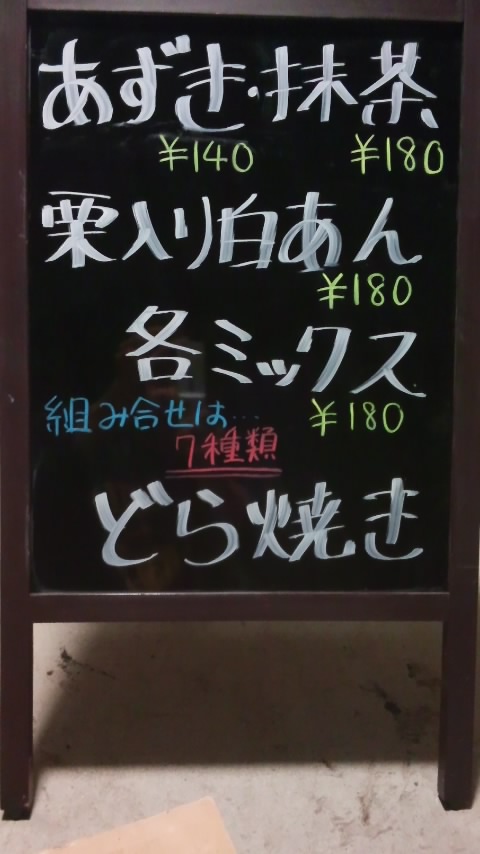 あずき・抹茶
¥140 ¥180
栗入り白あん
¥180
各ミックス
組み合せは… ¥180
7種類
どら焼き